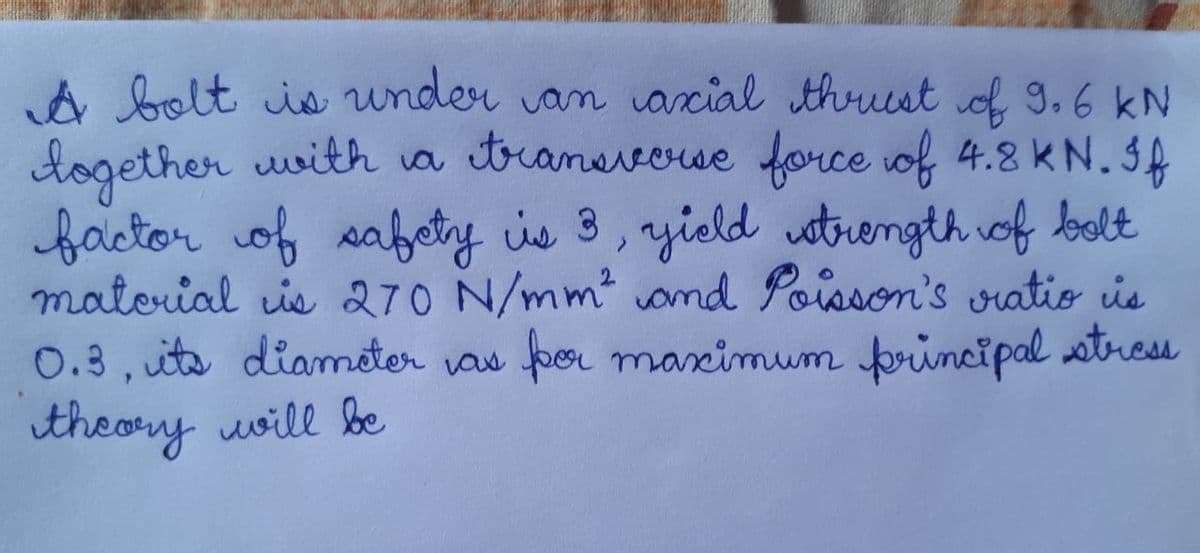 A bolt is under an axial thrust of 9.6 kN
together with a transverse force of 4.8 KN. If
factor of safety is 3, yield strength of bolt
material is 270 N/mm² and Poisson's ratio is
0.3, its diameter as per maximum principal stress
theory will be